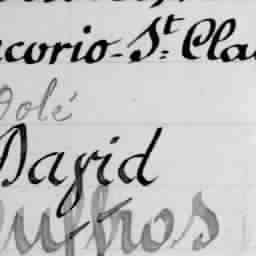 corio-St: Cla
Dolé
David
uffros